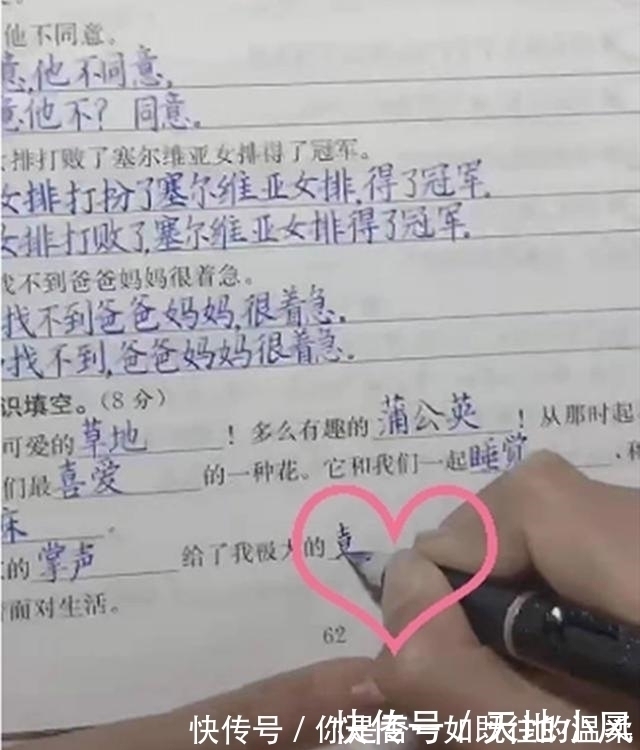 他不同意。
意,他不同意,
意他不?同意。
女排打败了塞尔维亚女排得了冠军。
女排打扮了塞尔维亚女排,得了冠军.
女排打败了,塞尔维亚女排得了冠军.
找不到爸爸妈妈很着急。
找不到爸爸妈妈,很着急.
找不到,爸爸妈妈很着急.
识填空。(8分)
可爱的草地!多么有趣的蒲公英!从那时起
们最喜爱的一种花。它和我们一起睡觉、和
床。
的掌声给了我极大的
面对生活。
62
快传号/你是否一如既往的温柔
快传号/天地小屋